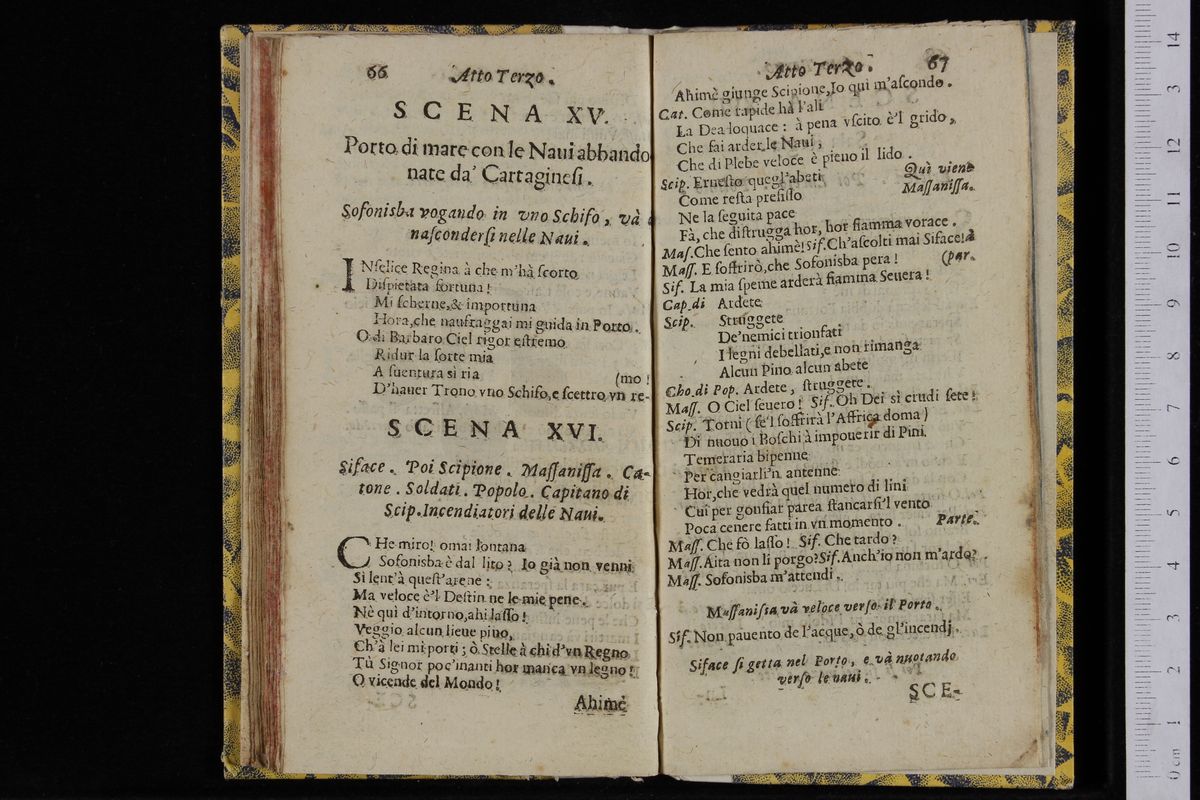 66 Atto Terzo.
SCENA XV.
Porto di mare con le Naui abbando
nate da' Cartaginesi.
Sofonisba vogando in vno Schifo, và a
nasconderſi nelle Naui.
INfelice Regina à che m'hà ſcorto
Diſpietata fortuna!
Mi ſcherne,& importuna
Hora,che naufraggai mi guida in Porto.
O di Barbaro Ciel rigor eſtremo
Ridur la ſorte mia
A ſuentura sì ria (mo!
D'hauer Trono vno Schifo,e ſcettro vn re-
SCENA XVI.
Siface. Poi Scipione. Maſſaniſſa. Ca-
tone. Soldati. Popolo. Capitano di
Scip.Incendiatori delle Naui.
CHe miro! omai lontana
Sofonisba è dal lito? Io già non venni
Sì lent'à queſt'arene:
Ma veloce è'l Deſtin ne le mie pene.
Nè quì d'intorno,ahi laſſo!
Veggio alcun lieue pino,
Ch'à lei mi porti; ò Stelle à chi d'vn Regno
Tù Signor poc'inanti hor manca vn legno!
O vicende del Mondo!
Ahimè
Atto Terzo. 67
Ahimè giunge Scipione,Io quì m'aſcondo.
Cat. Come rapide hà l'ali
La Dea loquace: à pena vſcito è'l grido,
Che fai arder le Naui;
Che di Plebe veloce è pieno il lido.
Scip. Erneſto quegl'abeti Quì viene
Come reſta prefiſſo Maſſaniſſa.
Ne la ſeguita pace
Fà, che diſtrugga hor, hor fiamma vorace.
Maſ.Che ſento ahimè!Sif.Ch'aſcolti mai Siface!à
Maſſ. E ſoffrirò,che Sofonisba pera! (par.
Sif. La mia ſpeme arderà fiamma Seuera!
Cap.di Ardete
Scip. Struggete
De'nemici trionfati
I legni debellati,e non rimanga
Alcun Pino alcun abete
Cho.di Pop. Ardete, ſtruggete.
Maſſ. O Ciel ſeuero! Sif.Oh Dei sì crudi ſete!
Scip. Torni (ſe'l ſoffrirà l'Affrica doma)
Di nuouo i Boſchi à impouerir di Pini
Temeraria bipenne
Per cangiarli'n antenne
Hor,che vedrà quel numero di lini
Cui per gonfiar parea ſtancarſi'l vento
Poca cenere fatti in vn momento. Parte.
Maſſ. Che fò laſſo! Sif. Che tardo?
Maſſ.Aita non li porgo?Sif.Anch'io non m'ardo?
Maſſ. Sofonisba m'attendi.
Maſſaniſſa và veloce verſo il Porto.
Sif. Non pauento de l'acque, ò de gl'incendj.
Siface ſi getta nel Porto, e và nuotando
verſo le naui.
SCE-
0 cm 1 2 3 4 5 6 7 8 9 10 11 12 3 14